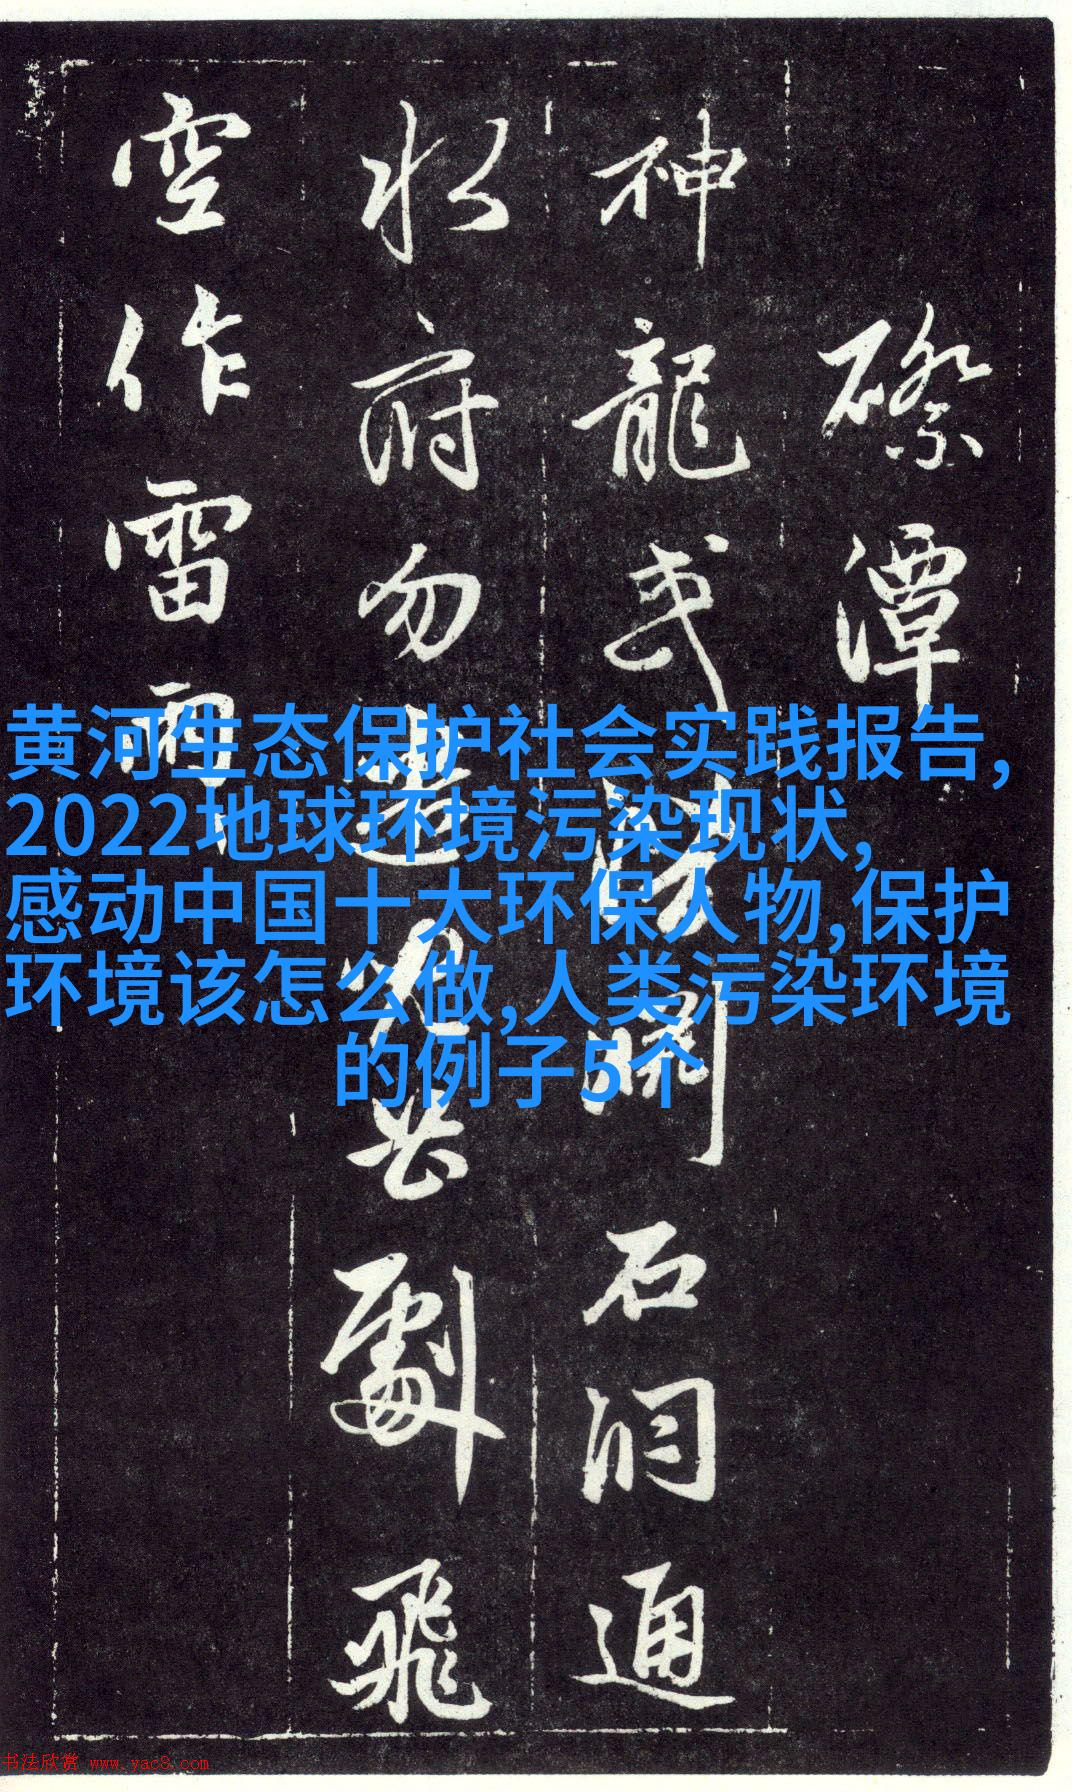 潭
神龍石洞通
水府勿劇飛
空作雷雨
黄河生态保护社会实践报告,
2022地球环境污染现状,
感动中国十大环保人物,保护
环境该怎么做,人类污染环境
的例子5个
书法欣赏 www.yac8.com